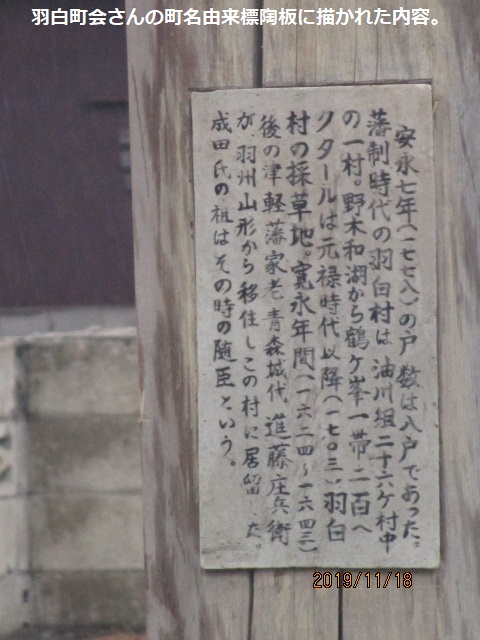 羽白町会さんの町名由来標陶板に描かれた内容。
安永七年(一七七八)の戸数は八戸であった。
藩制時代の羽白村は油川組二十六ケ村中
の一村。野木和湖から鶴ケ峯一帯二百ヘ
クタールは元禄時代以降(一七〇三)羽白
村の採草地。寛永年間(一六二四~一六四三)
後の津軽藩家老青森城代進藤庄兵衛
が羽州山形から移住しこの村に居留した。
成田氏の祖はその時の随臣という。
2019/11/18